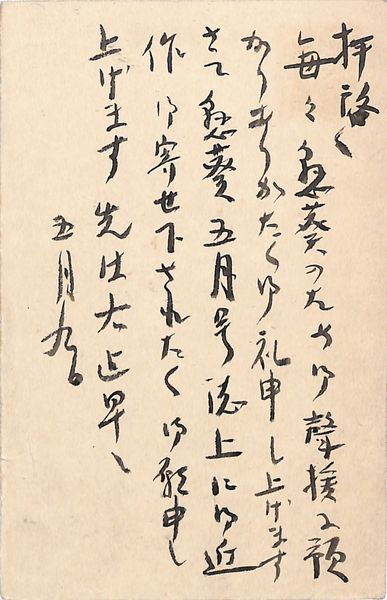 拝啓
毎々懸葵のため御聲援に預
かりありがたく御礼申し上げます
さて懸葵五月号誌上に御近
作御寄せ下されたく御願申し
上げます 先は右迄早々
五月九日